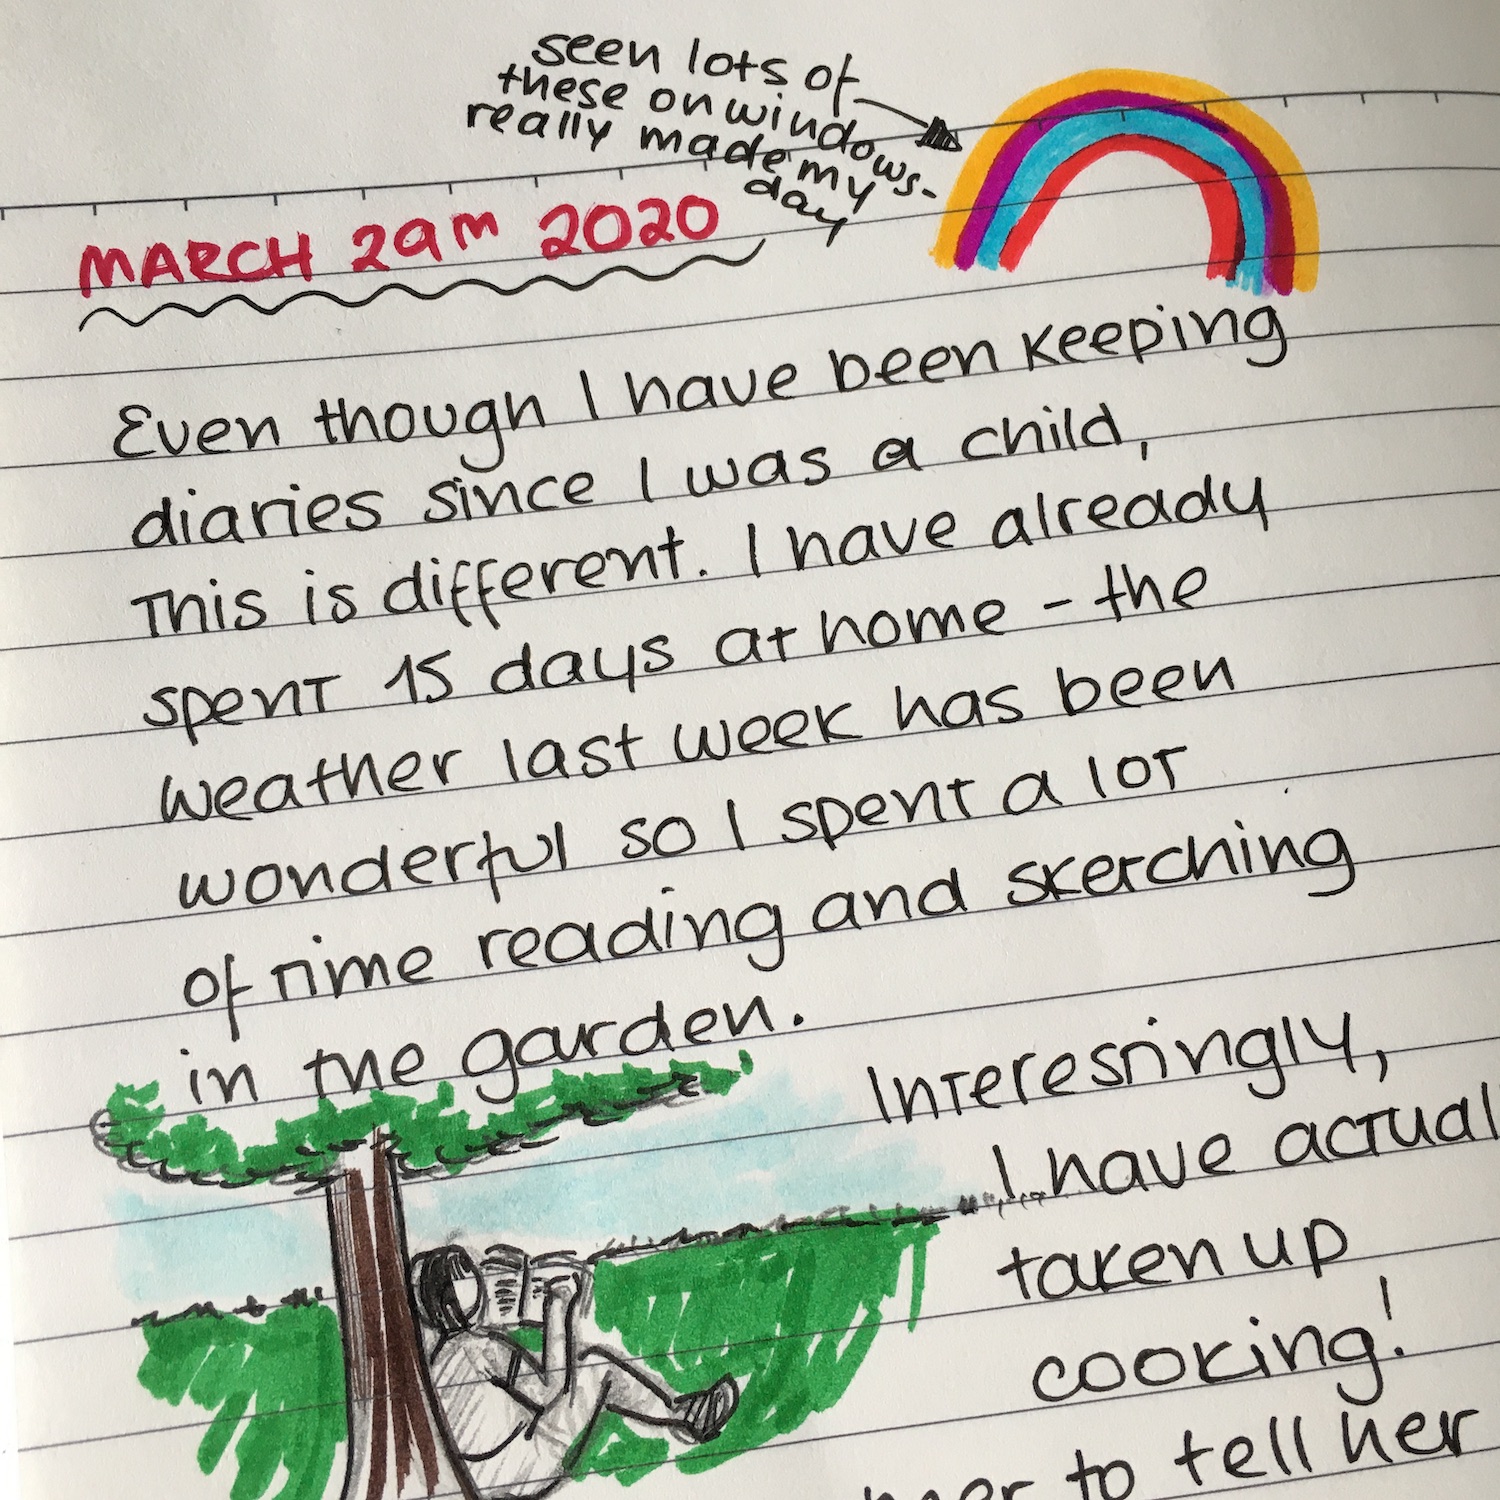 seen lots of
these on windows-
really made my
day
MARCH 29TH 2020
Even though I have been keeping
diaries since I was a child,
This is different. I have already
spent 15 days at home - the
weather last week has been
wonderful so I spent a lot
of time reading and sketching
in the garden.
Interestingly,
I have actual
taken up
cooking!
to tell her